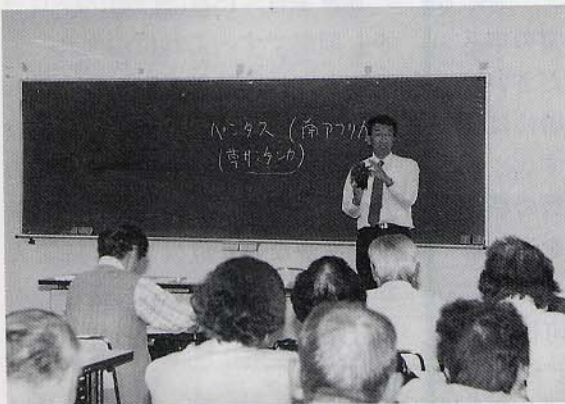 ペンタス (南アフリカ
(草サンタンカ)